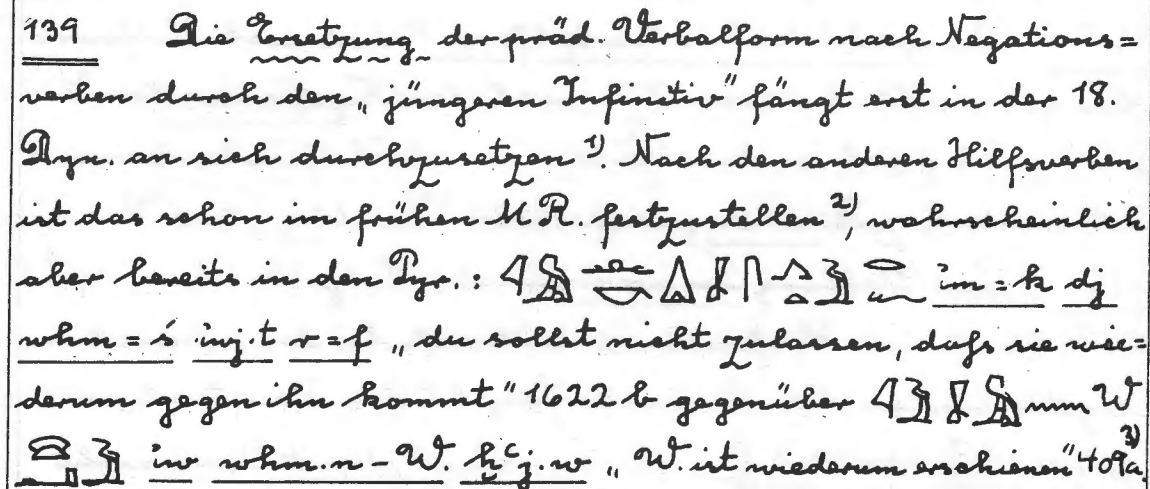 139 Die Ersetzung der präd. Verbalform nach Negations=
verben durch den „jüngeren Infinitiv" fängt erst in der 18.
Dyn. an sich durchzusetzen ¹⁾. Nach den anderen Hilfsverben
ist das schon im frühen M R. festzustellen ²⁾, wahrscheinlich
aber bereits in den Pyr.: i҆m=k dj
wḥm=ś i҆wj.t r=f „du sollst nicht zulassen, daſs sie wie=
derum gegen ihn kommt" 1622 b gegenüber W
i҆w wḥm.n-W. ḫꜥj.w „W. ist wiederum erschienen" 409a ³⁾.